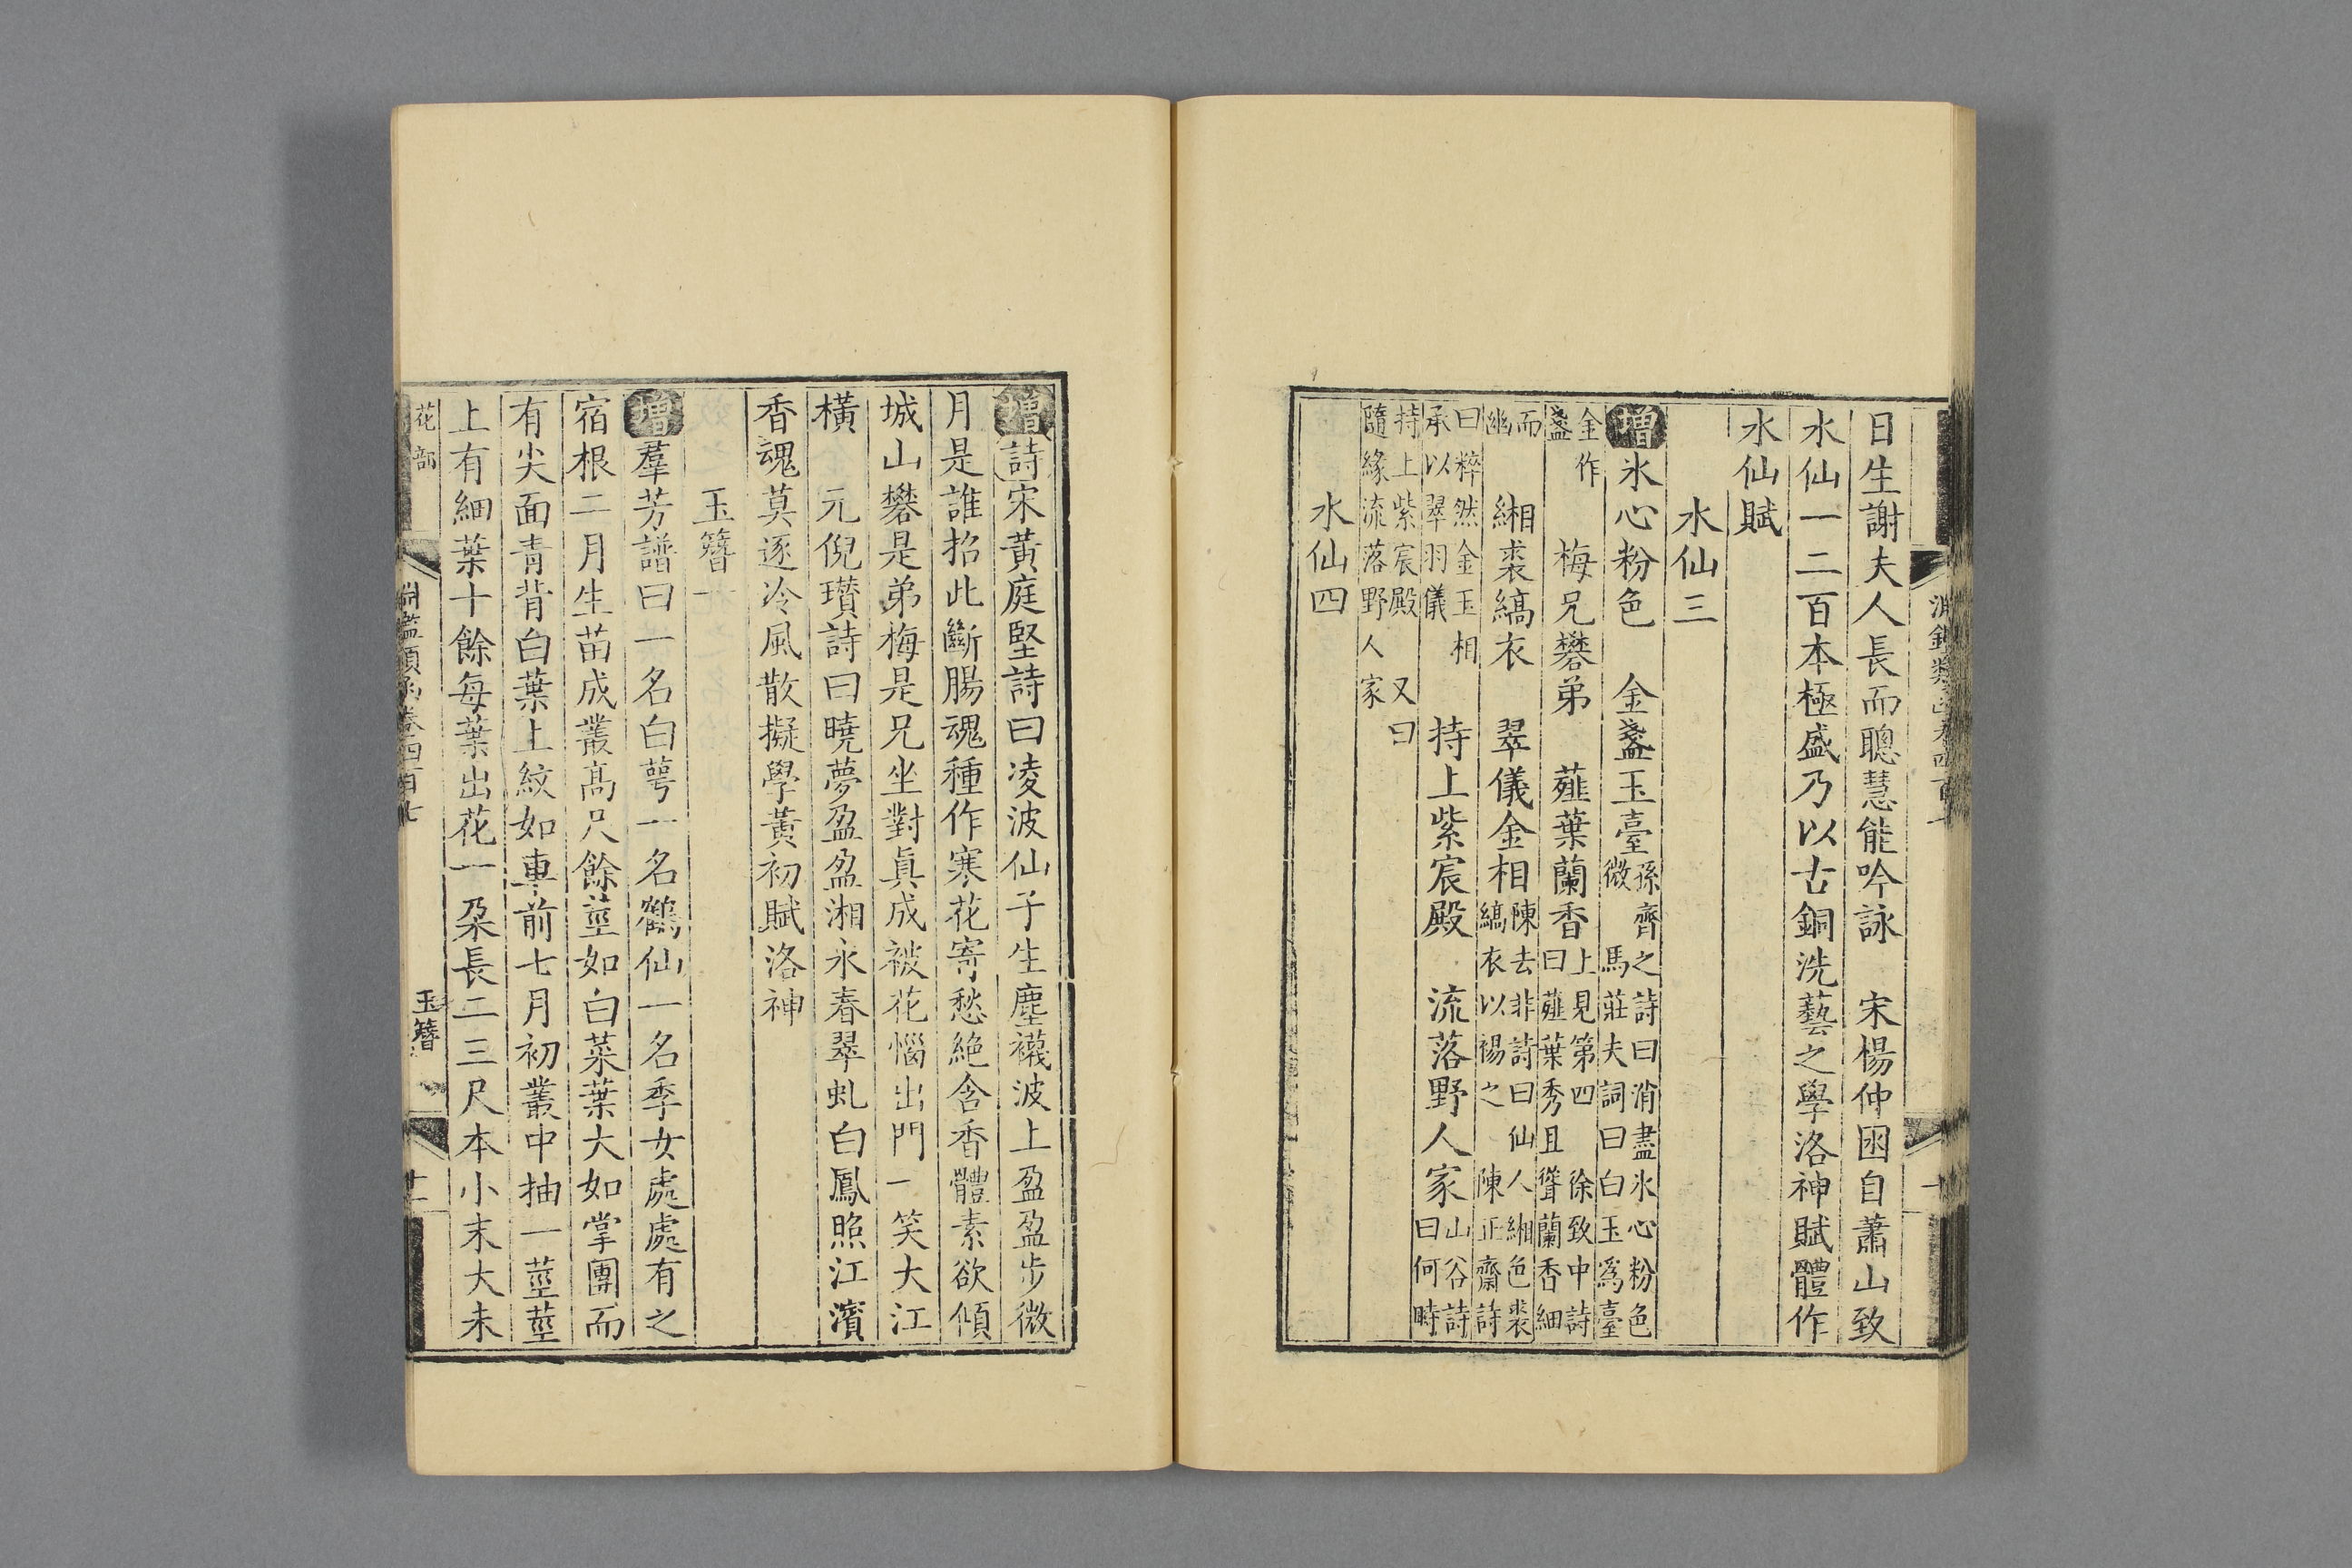 日生謝夫人長而聰慧能吟詠　宋楊仲囦自蕭山致
水仙一二百本極盛乃以古銅洗藝之學洛神賦體作
水仙賦
水仙三
增氷心粉色　金盞玉臺孫齊之詩曰消盡氷心粉色
微　馬莊夫詞曰白玉爲臺
金作
盞　梅兄礬弟　薤葉蘭香上見第四　徐致中詩
曰薤葉秀且聳蘭香細
而
幽　緗裘縞衣　翠儀金相陳去非詩曰仙人緗色裘
縞衣以裼之　陳正齋詩
曰粹然金玉相
承以翠羽儀　持上紫宸殿　流落野人家山谷詩
曰何時
持上紫宸殿　又曰
隨緣流落野人家
水仙四
增詩宋黃庭堅詩曰凌波仙子生塵襪波上盈盈步微
月是誰招此斷腸魂種作寒花寄愁絶含香體素欲傾
城山礬是弟梅是兄坐對眞成被花惱出門一笑大江
橫　元倪瓚詩曰曉夢盈盈湘水春翠虬白鳳照江濱
香魂莫逐冷風散擬學黃初賦洛神
玉簪一
增羣芳譜曰一名白蕚一名鶴仙一名季女處處有之
宿根二月生苗成叢高尺餘莖如白菜葉大如掌團而
有尖面青背白葉上紋如車前七月初叢中抽一莖莖
上有細葉十餘每葉出花一朶長二三尺本小末大未
花部　淵鑑類函卷四百七　玉簪　十二